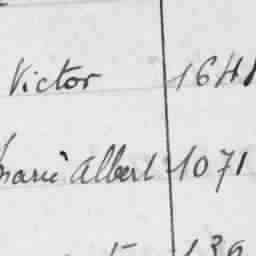 Victor 1641
Marie Albert 1071
139